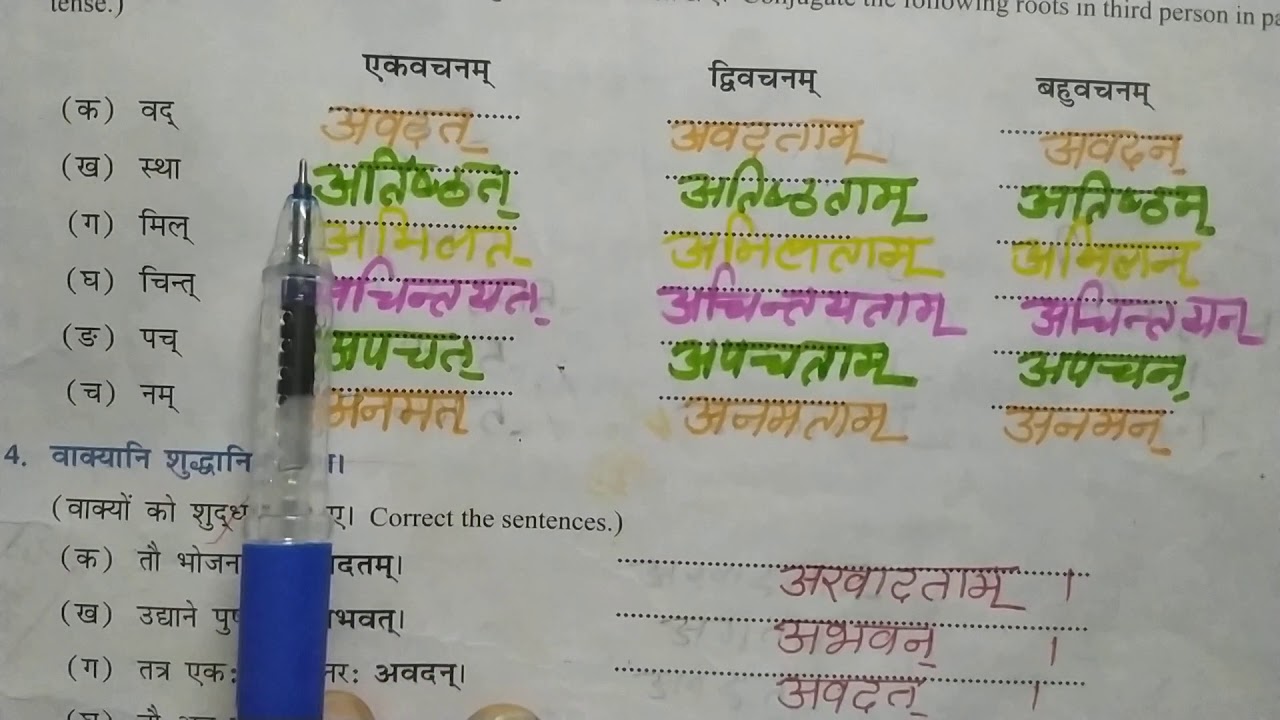 tense.) Conjugate the following roots in third person in pa
एकवचनम् द्विवचनम् बहुवचनम्
(क) वद् अवदत् अवदताम् अवदन्
(ख) स्था अतिष्ठत् अतिष्ठताम् अतिष्ठन्
(ग) मिल् अमिलत् अमिलताम् अमिलन्
(घ) चिन्त् अचिन्तयत् अचिन्तयताम् अचिन्तयन्
(ङ) पच् अपचत् अपचताम् अपचन्
(च) नम् अनमत् अनमताम् अनमन्
4. वाक्यानि शुद्धानि
(वाक्यों को शुद्ध Correct the sentences.)
(क) तौ अखादताम् ।
(ख) उद्याने अभवन् ।
(ग) तत्र एकः अवदन्। अवदत् ।